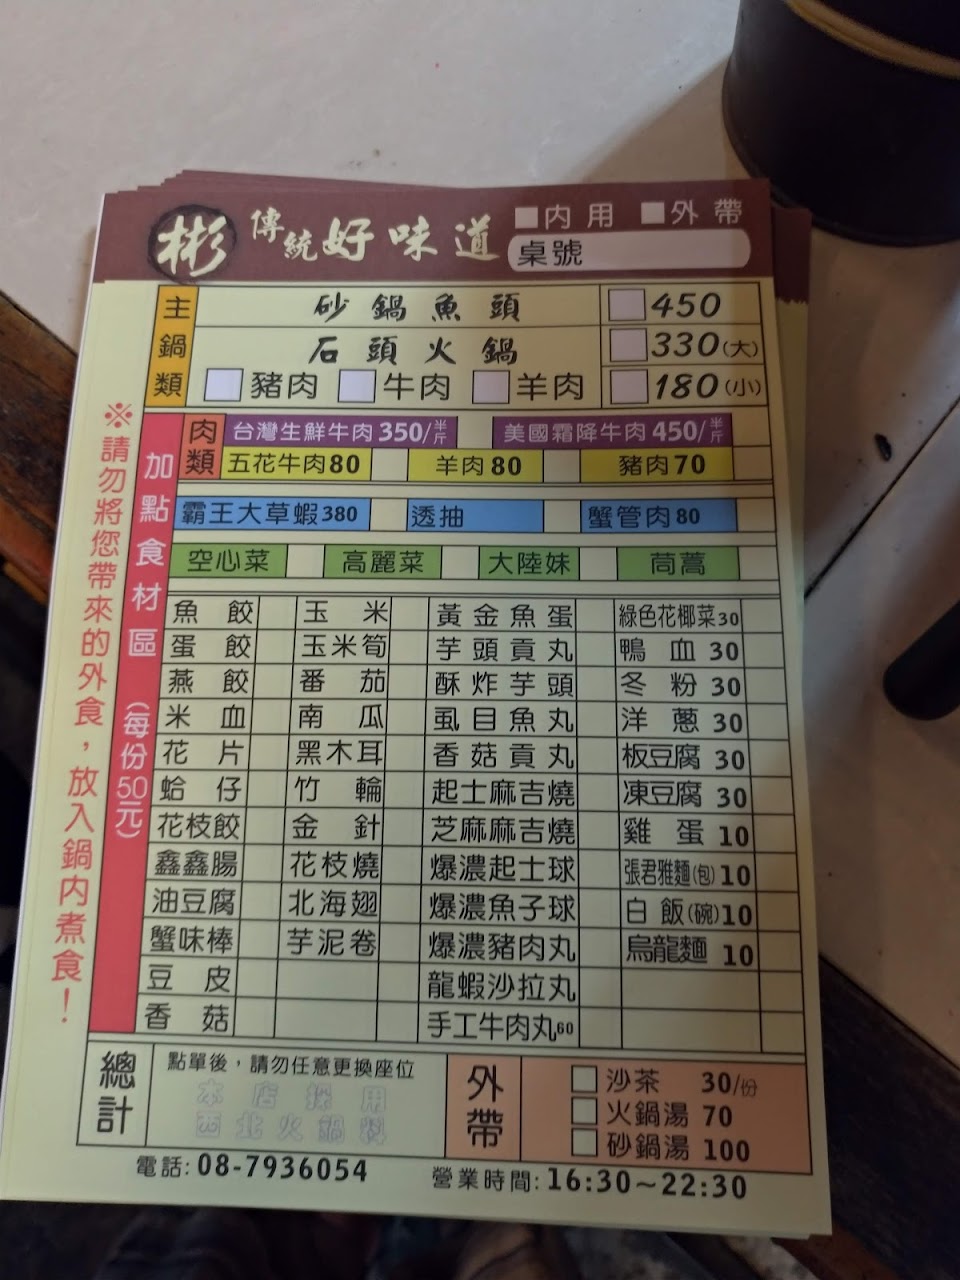 彬 傳統好味道 內用 外帶
桌號
主鍋類
砂鍋魚頭 450
石頭火鍋 330(大)
豬肉 牛肉 羊肉 180(小)
※請勿將您帶來的外食，放入鍋內煮食！
加點食材區(每份50元)
肉類
台灣生鮮牛肉350/半斤 美國霜降牛肉450/半斤
五花牛肉80 羊肉80 豬肉70
霸王大草蝦380 透抽 蟹管肉80
空心菜 高麗菜 大陸妹 茼蒿
魚餃 玉米 黃金魚蛋 綠色花椰菜30
蛋餃 玉米筍 芋頭貢丸 鴨血30
燕餃 番茄 酥炸芋頭 冬粉30
米血 南瓜 虱目魚丸 洋蔥30
花片 黑木耳 香菇貢丸 板豆腐30
蛤仔 竹輪 起士麻吉燒 凍豆腐30
花枝餃 金針 芝麻麻吉燒 雞蛋10
鑫鑫腸 花枝燒 爆濃起士球 張君雅麵(包)10
油豆腐 北海翅 爆濃魚子球 白飯(碗)10
蟹味棒 芋泥卷 爆濃豬肉丸 烏龍麵10
豆皮 龍蝦沙拉丸
香菇 手工牛肉丸60
總計
點單後，請勿任意更換座位
本店採用
西北火鍋料
外帶
沙茶 30/份
火鍋湯 70
砂鍋湯 100
電話:08-7936054 營業時間:16:30~22:30